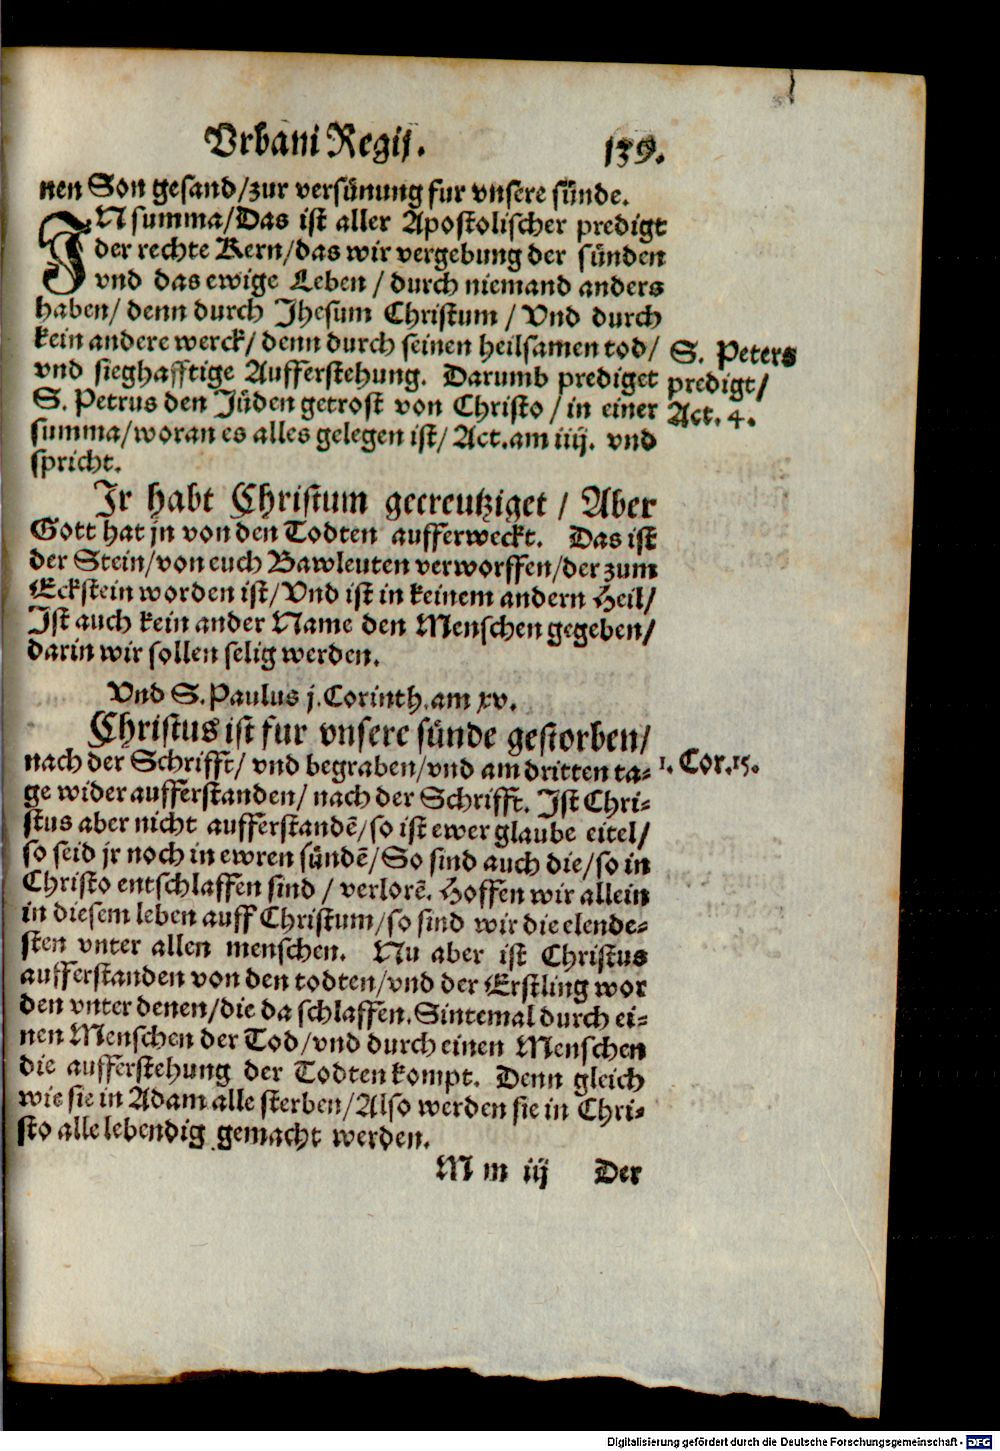 Vrbani Regij. 139.
nen Son gesand/zur versünung fur vnsere sünde.
IN summa/Das ist aller Apostolischer predigt
der rechte Kern/das wir vergebung der sünden
vnd das ewige Leben / durch niemand anders
haben/ denn durch Jhesum Christum / Vnd durch
kein andere werck/ denn durch seinen heilsamen tod/
vnd sieghafftige Aufferstehung. Darumb prediget
S. Petrus den Jüden getrost von Christo / in einer
summa/woran es alles gelegen ist/ Act.am iiij. vnd
spricht.
S. Peters
predigt/
Act. 4.
Jr habt Christum gecreutziget / Aber
Gott hat jn von den Todten aufferweckt. Das ist
der Stein/von euch Bawleuten verworffen/der zum
Eckstein worden ist/Vnd ist in keinem andern Heil/
Ist auch kein ander Name den Menschen gegeben/
darin wir sollen selig werden.
Vnd S. Paulus j. Corinth. am xv.
Christus ist fur vnsere sünde gestorben/
nach der Schrifft/ vnd begraben/vnd am dritten ta-
ge wider aufferstanden/ nach der Schrifft. Ist Chri-
stus aber nicht aufferstandē/so ist ewer glaube eitel/
so seid jr noch in ewren sündē/So sind auch die/so in
Christo entschlaffen sind / verlorē. Hoffen wir allein
in diesem leben auff Christum/so sind wir die elende-
sten vnter allen menschen. Nu aber ist Christus
aufferstanden von den todten/vnd der Erstling wor
den vnter denen/die da schlaffen. Sintemal durch ei-
nen Menschen der Tod/vnd durch einen Menschen
die aufferstehung der Todten kompt. Denn gleich
wie sie in Adam alle sterben/Also werden sie in Chri-
sto alle lebendig gemacht werden.
1. Cor. 15.
M m iij Der
Digitalisierung gefördert durch die Deutsche Forschungsgemeinschaft - DFG